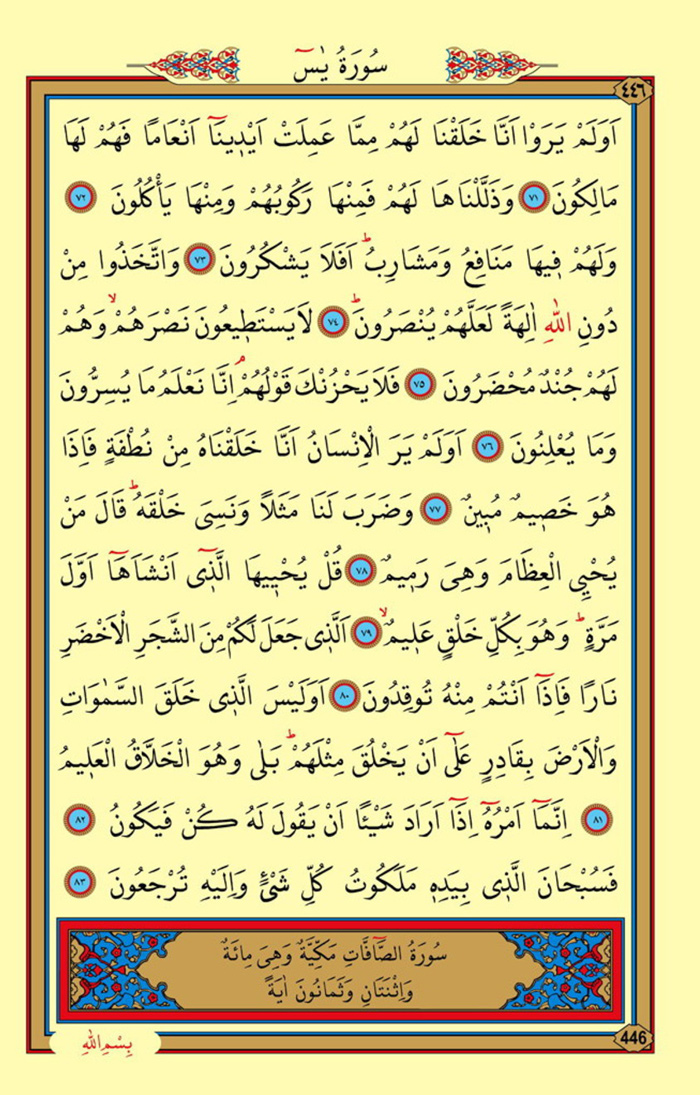 سُورَةُ يٰسٓ
٤٤٦
اَوَلَمْ يَرَوْا اَنَّا خَلَقْنَا لَهُمْ مِمَّا عَمِلَتْ اَيْدٖينَٓا اَنْعَامًا فَهُمْ لَهَا
مَالِكُونَ ﴿٧١﴾ وَذَلَّلْنَاهَا لَهُمْ فَمِنْهَا رَكُوبُهُمْ وَمِنْهَا يَأْكُلُونَ ﴿٧٢﴾
وَلَهُمْ فٖيهَا مَنَافِعُ وَمَشَارِبُۜ اَفَلَا يَشْكُرُونَ ﴿٧٣﴾ وَاتَّخَذُوا مِنْ
دُونِ اللّٰهِ اٰلِهَةً لَعَلَّهُمْ يُنْصَرُونَۜ ﴿٧٤﴾ لَا يَسْتَطٖيعُونَ نَصْرَهُمْۙ وَهُمْ
لَهُمْ جُنْدٌ مُحْضَرُونَ ﴿٧٥﴾ فَلَا يَحْزُنْكَ قَوْلُهُمْۢ اِنَّا نَعْلَمُ مَا يُسِرُّونَ
وَمَا يُعْلِنُونَ ﴿٧٦﴾ اَوَلَمْ يَرَ الْاِنْسَانُ اَنَّا خَلَقْنَاهُ مِنْ نُطْفَةٍ فَاِذَا
هُوَ خَصٖيمٌ مُبٖينٌ ﴿٧٧﴾ وَضَرَبَ لَنَا مَثَلًا وَنَسِىَ خَلْقَهُۜ قَالَ مَنْ
يُحْيِ الْعِظَامَ وَهِىَ رَمٖيمٌ ﴿٧٨﴾ قُلْ يُحْيٖيهَا الَّذٖٓى اَنْشَاَهَٓا اَوَّلَ
مَرَّةٍۜ وَهُوَ بِكُلِّ خَلْقٍ عَلٖيمٌۙ ﴿٧٩﴾ اَلَّذٖى جَعَلَ لَكُمْ مِنَ الشَّجَرِ الْاَخْضَرِ
نَارًا فَاِذَٓا اَنْتُمْ مِنْهُ تُوقِدُونَ ﴿٨٠﴾ اَوَلَيْسَ الَّذٖى خَلَقَ السَّمٰوَاتِ
وَالْاَرْضَ بِقَادِرٍ عَلٰٓى اَنْ يَخْلُقَ مِثْلَهُمْۜ بَلٰى وَهُوَ الْخَلَّاقُ الْعَلٖيمُ
﴿٨١﴾ اِنَّمَٓا اَمْرُهُٓ اِذَٓا اَرَادَ شَيْئًا اَنْ يَقُولَ لَهُ كُنْ فَيَكُونُ ﴿٨٢﴾
فَسُبْحَانَ الَّذٖى بِيَدِهٖ مَلَكُوتُ كُلِّ شَىْءٍ وَاِلَيْهِ تُرْجَعُونَ ﴿٨٣﴾
سُورَةُ الصَّٓافَّاتِ مَكِّيَّةٌ وَهِىَ مِائَةٌ
وَاِثْنَتَانِ وَثَمَانُونَ اٰيَةً
446
بِسْمِ اللّٰهِ